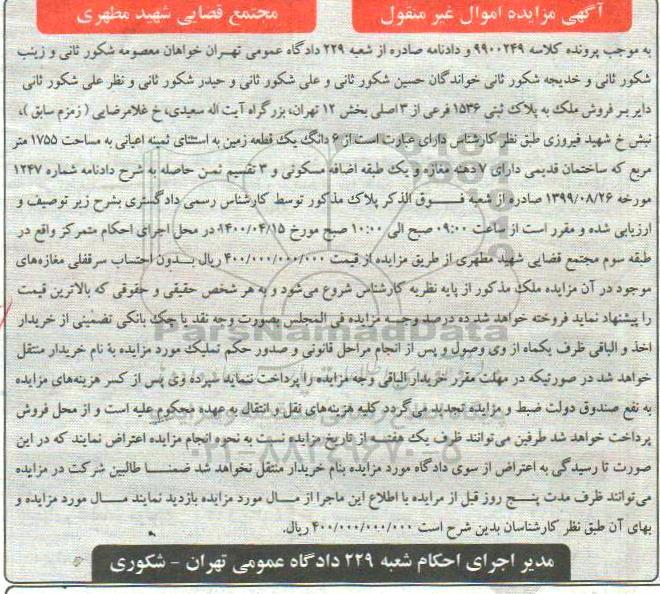 آگهی مزایده اموال غیر منقول
مجتمع قضایی شهید مطهری
به موجب پرونده کلاسه ۹۹۰۰۲۴۹ و دادنامه صادره از شعبه ۲۲۹ دادگاه عمومی تهران خواهان معصومه شکور ثانی و زینب
شکور ثانی و خدیجه شکور ثانی خواندگان حسین شکور ثانی و علی شکور ثانی و حیدر شکور ثانی و نظر علی شکور ثانی
دایر بر فروش ملک به پلاک ثبتی ۱۵۳۶ فرعی از ۳ اصلی بخش ۱۲ تهران، بزرگراه آیت اله سعیدی، خ غلامرضایی ( زمزم سابق )،
نبش خ شهید فیروزی طبق نظر کارشناس دارای عبارت است از ۶ دانگ یک قطعه زمین به استثنای ثمینه اعیانی به مساحت ۱۷۵۵ متر
مربع که ساختمان قدیمی دارای ۷ دهنه مغازه و یک طبقه اضافه مسکونی و ۳ تقسیم ثمن حاصله به شرح دادنامه شماره ۱۲۴۷
مورخه ۱۳۹۹/۰۸/۲۶ صادره از شعبه فوق الذکر پلاک مذکور توسط کارشناس رسمی دادگستری بشرح زیر توصیف و
ارزیابی شده و مقرر است از ساعت ۰۹:۰۰ صبح الی ۱۰:۰۰ صبح مورخ ۱۴۰۰/۰۴/۱۵ در محل اجرای احکام متمرکز واقع در
طبقه سوم مجتمع قضایی شهید مطهری از طریق مزایده از قیمت ۴۰۰/۰۰۰/۰۰۰/۰۰۰ ریال بدون احتساب سرقفلی مغازه‌های
موجود در آن مزایده ملک مذکور از پایه نظریه کارشناس شروع می‌شود و به هر شخص حقیقی و حقوقی که بالاترین قیمت
را پیشنهاد نماید فروخته خواهد شد ده درصد وجه مزایده فی المجلس بصورت وجه نقد یا چک بانکی تضمینی از خریدار
اخذ و الباقی ظرف یکماه از وی وصول و پس از انجام مراحل قانونی و صدور حکم تملیک مورد مزایده به نام خریدار منتقل
خواهد شد در صورتیکه در مهلت مقرر خریدار الباقی وجه مزایده را پرداخت ننماید سپرده وی پس از کسر هزینه‌های مزایده
به نفع صندوق دولت ضبط و مزایده تجدید می‌گردد کلیه هزینه‌های نقل و انتقال به عهده محکوم علیه است و از محل فروش
پرداخت خواهد شد طرفین می‌توانند ظرف یک هفته از تاریخ مزایده نسبت به نحوه انجام مزایده اعتراض نمایند که در این
صورت تا رسیدگی به اعتراض از سوی دادگاه مورد مزایده بنام خریدار منتقل نخواهد شد ضمنا طالبین شرکت در مزایده
می‌توانند ظرف مدت پنج روز قبل از مزایده با اطلاع این ماجرا از مال مورد مزایده بازدید نمایند مال مورد مزایده و
بهای آن طبق نظر کارشناسان بدین شرح است ۴۰۰/۰۰۰/۰۰۰/۰۰۰ ریال.
مدیر اجرای احکام شعبه ۲۲۹ دادگاه عمومی تهران - شکوری
ParsNamadData
۰۲۱-۸۸۳۴۹۶۷۰-۵